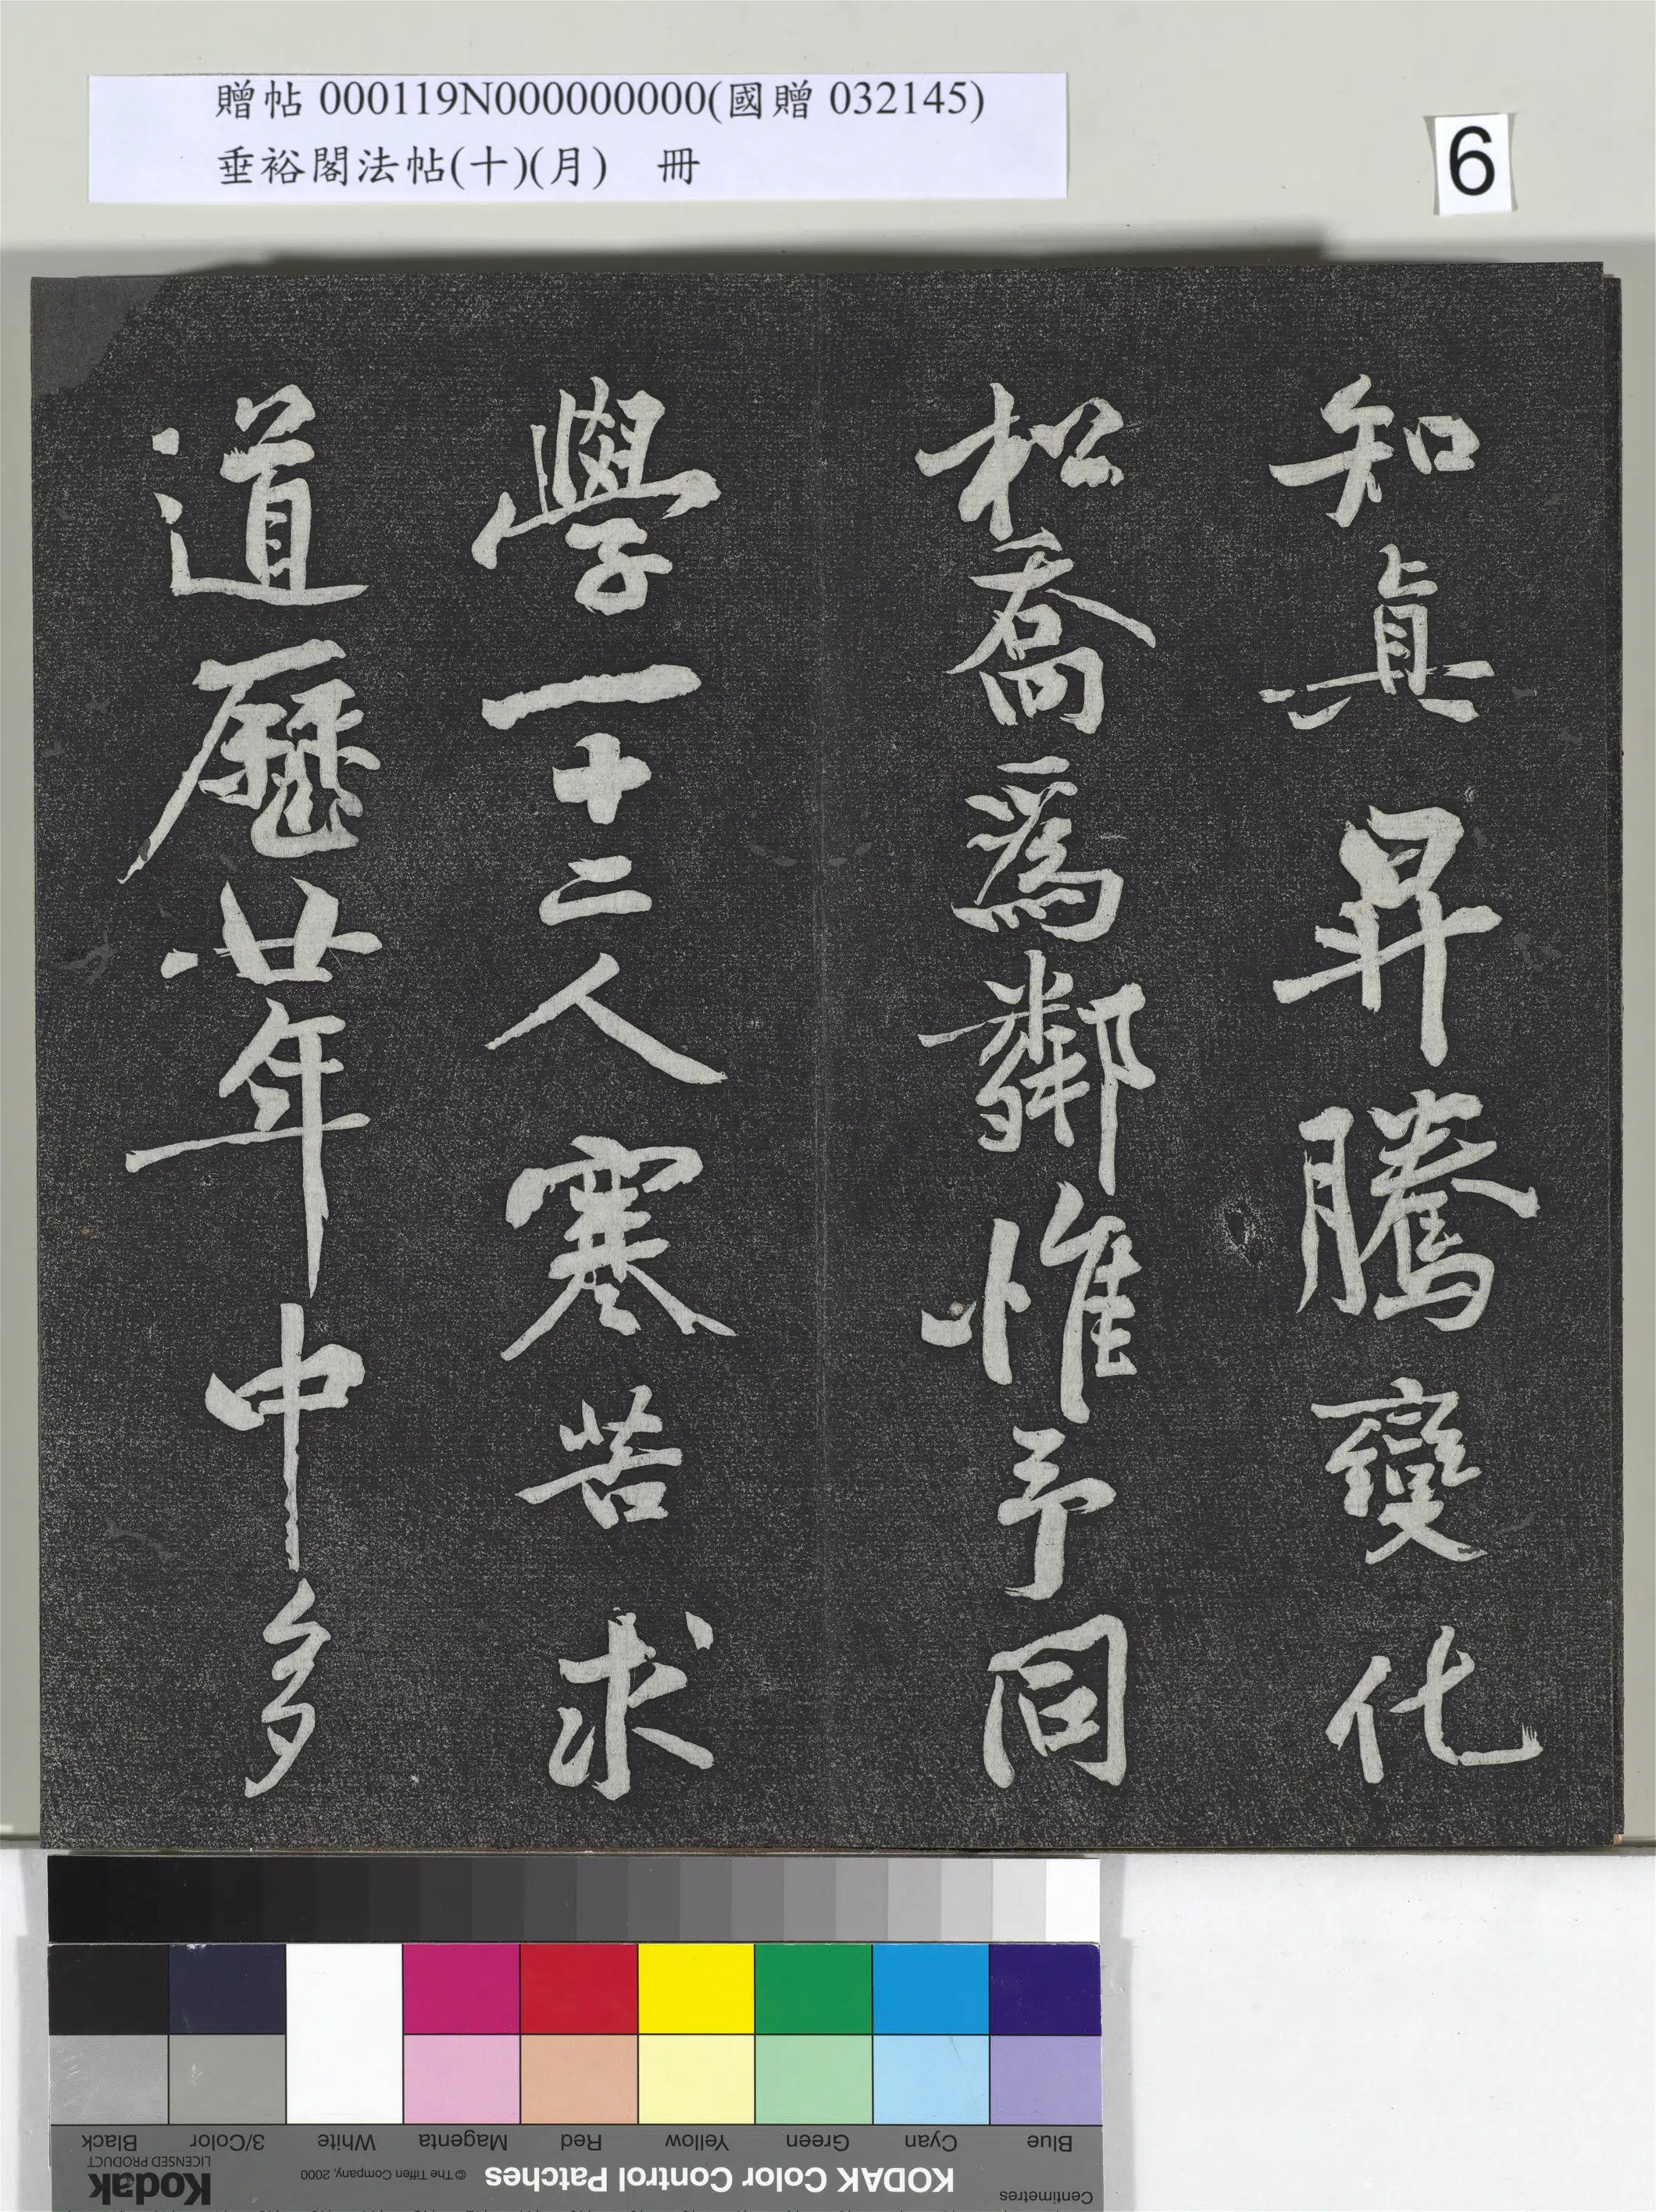 贈帖 000119N000000000(國贈 032145)
垂裕閣法帖(十)(月) 冊
6
知真昇騰變化
松喬為鄰惟予同
學一十二人寒苦求
道歷廿年中多
Blue
Cyan
Green
Yellow
Red
Magenta
White
3/Color
Black
Centimetres
KODAK Color Control Patches
© The Tiffen Company, 2000
Kodak
LICENSED PRODUCT